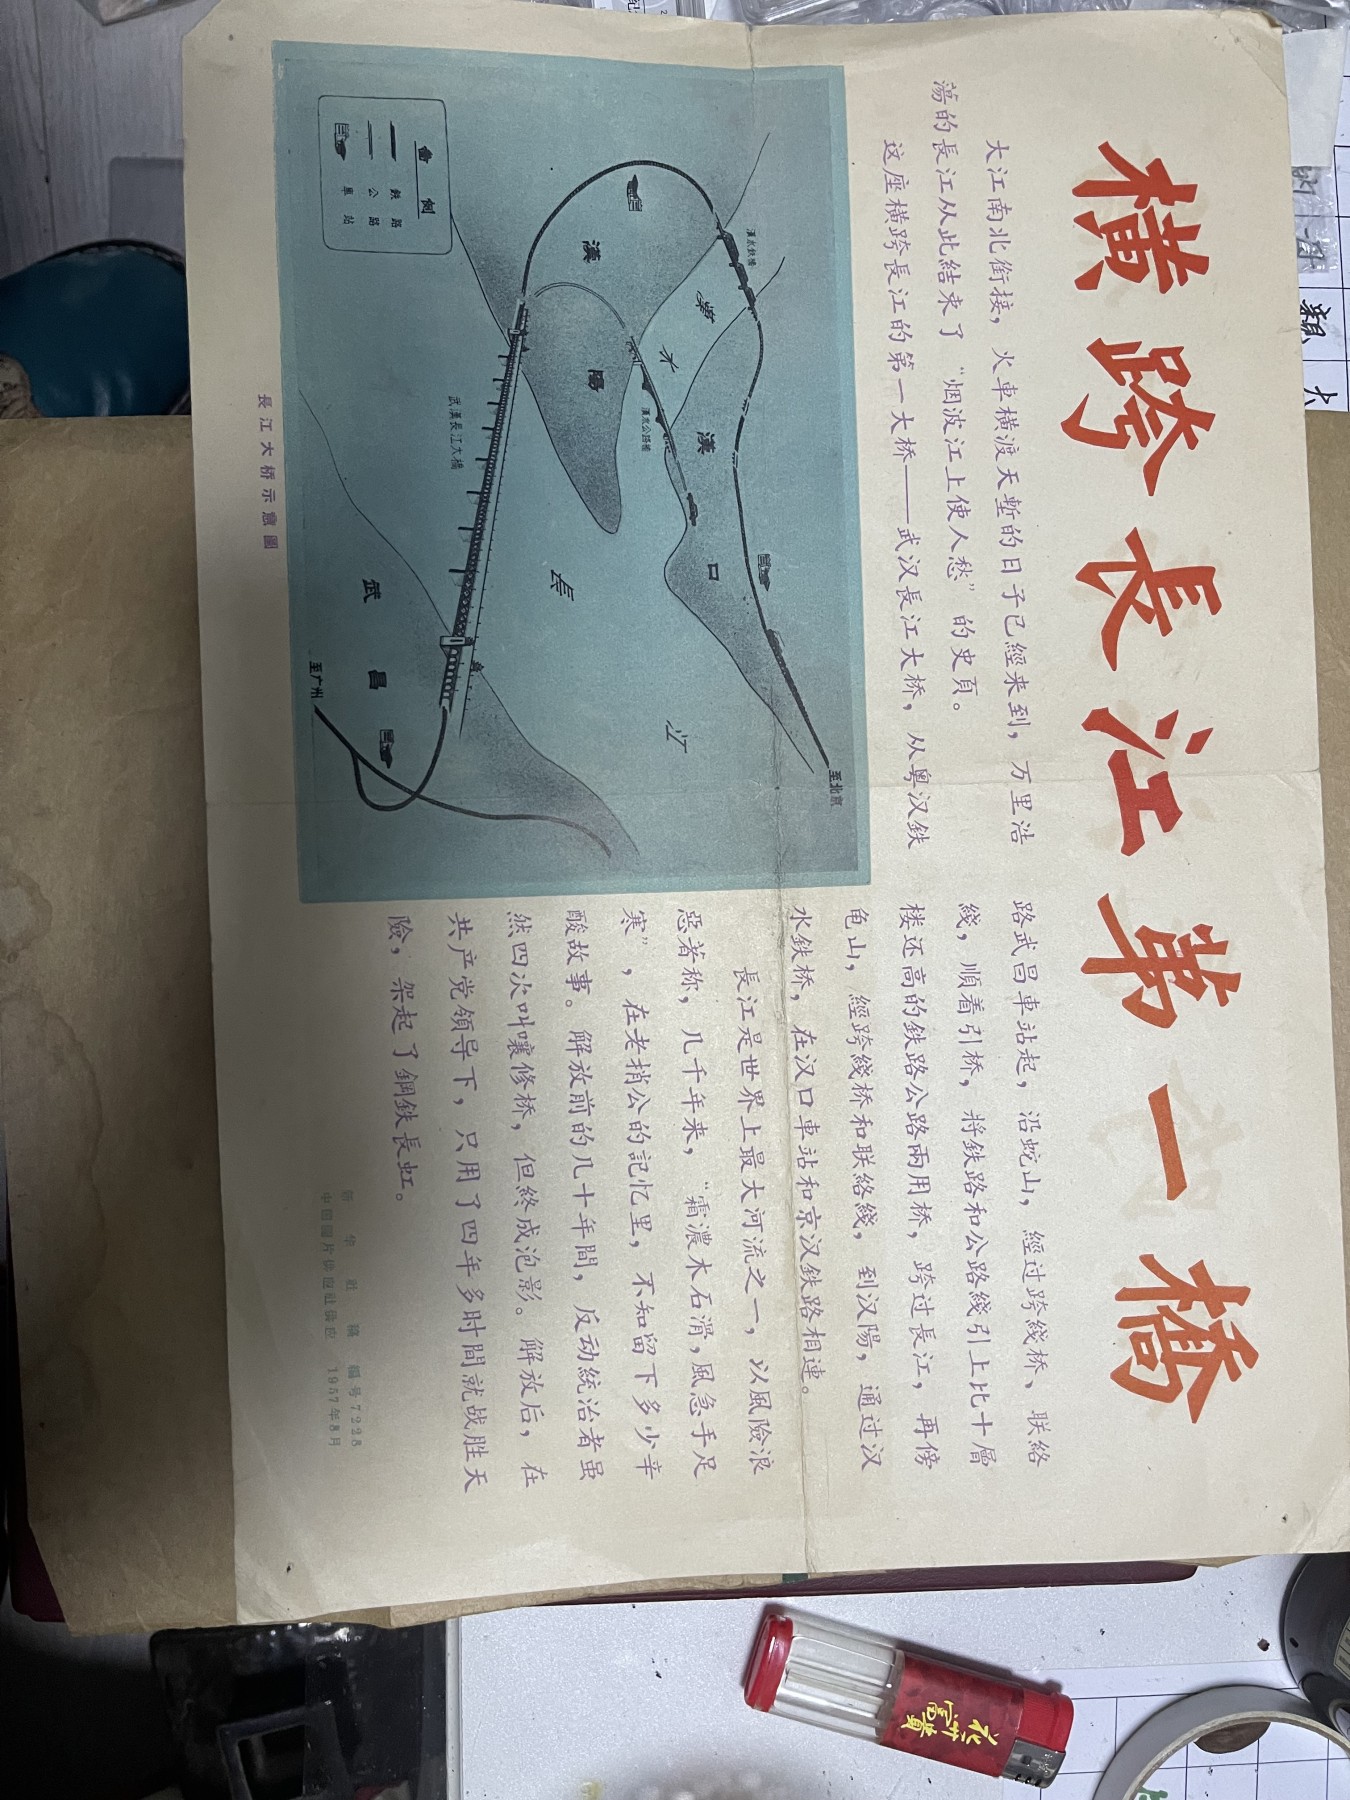 橫跨長江第一橋
大江南北銜接，火車橫渡天塹的日子已經来到，万里浩
蕩的長江从此結束了“烟波江上使人愁”的史頁。
这座橫跨長江的第一大桥——武汉長江大桥，从粤汉鉄
路武昌車站起，沿蛇山，經过跨綫桥、联絡
綫，順着引桥，将鉄路和公路綫引上比十層
楼还高的鉄路公路兩用桥，跨过長江，再傍
龟山，經跨綫桥和联絡綫，到汉陽，通过汉
水鉄桥，在汉口車站和京汉鉄路相連。
長江是世界上最大河流之一，以風險浪
惡著称，几千年来，“霜濃木石滑，風急手足
寒”，在老梢公的記忆里，不知留下多少辛
酸故事。解放前的几十年間，反动統治者虽
然四次叫嚷修桥，但終成泡影。解放后，在
共产党領导下，只用了四年多时間就战胜天
險，架起了鋼鉄長虹。
新华社稿 編号7228
中国圖片供应社供应 1957年8月
漢水鉄橋
漢水
漢陽
漢口
漢水公路橋
至北京
長江
武漢長江大橋
武昌
至广州
鉄路
公路
車站
長江大桥示意圖
花開富貴
類